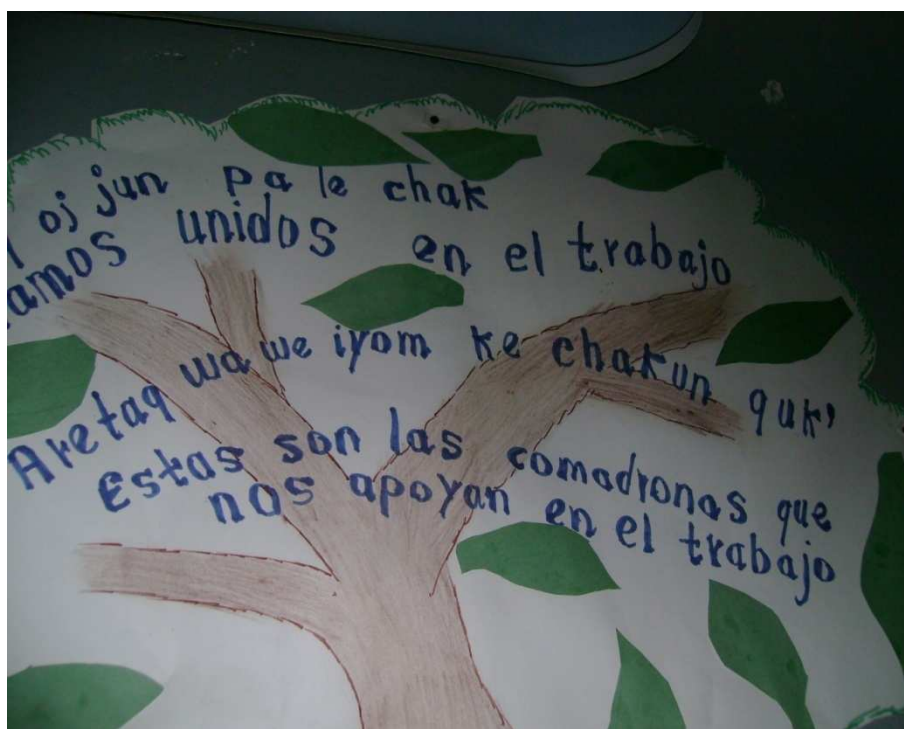 oj jun pa le chak
amos unidos en el trabajo
Aretaq wa we iyom ke chakun quk'
Estas son las comadronas que
nos apoyan en el trabajo